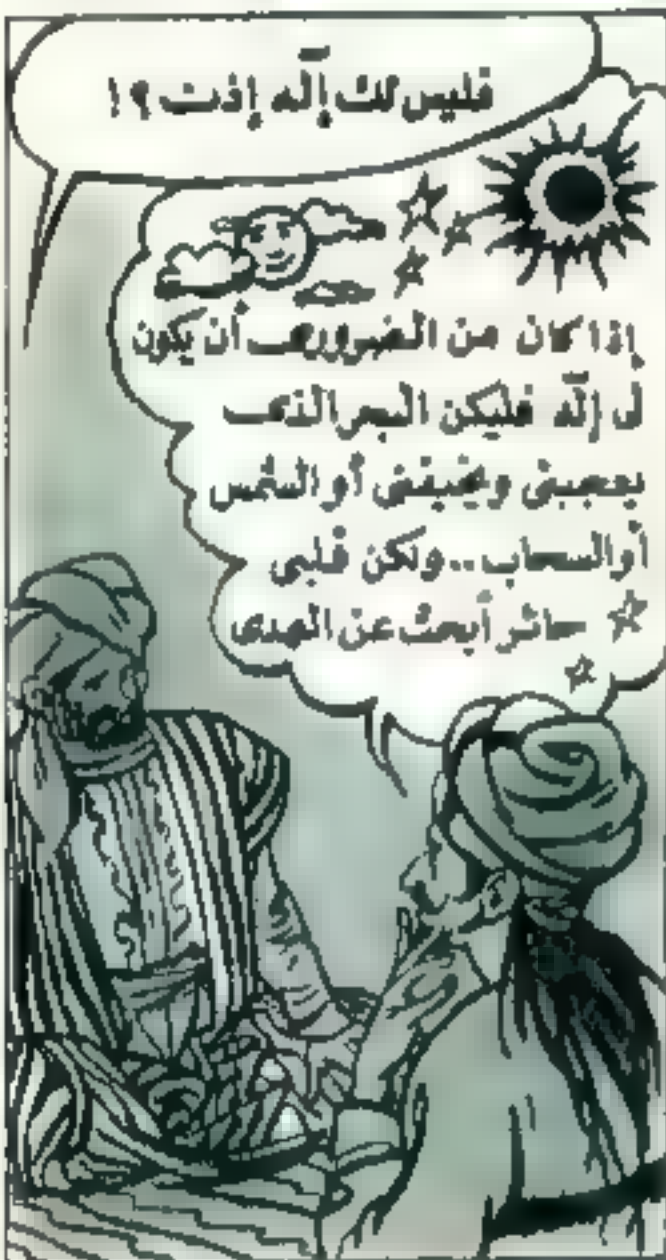 فليس لك إلّه إذن ؟!
إذا كان من الضرورى أن يكون
لى إلّه فليكن البحر الذى
يعجبنى ويخيفنى أو الشمس
أو السحاب .. ولكن قلبى
حائر أبحث عن الهدى